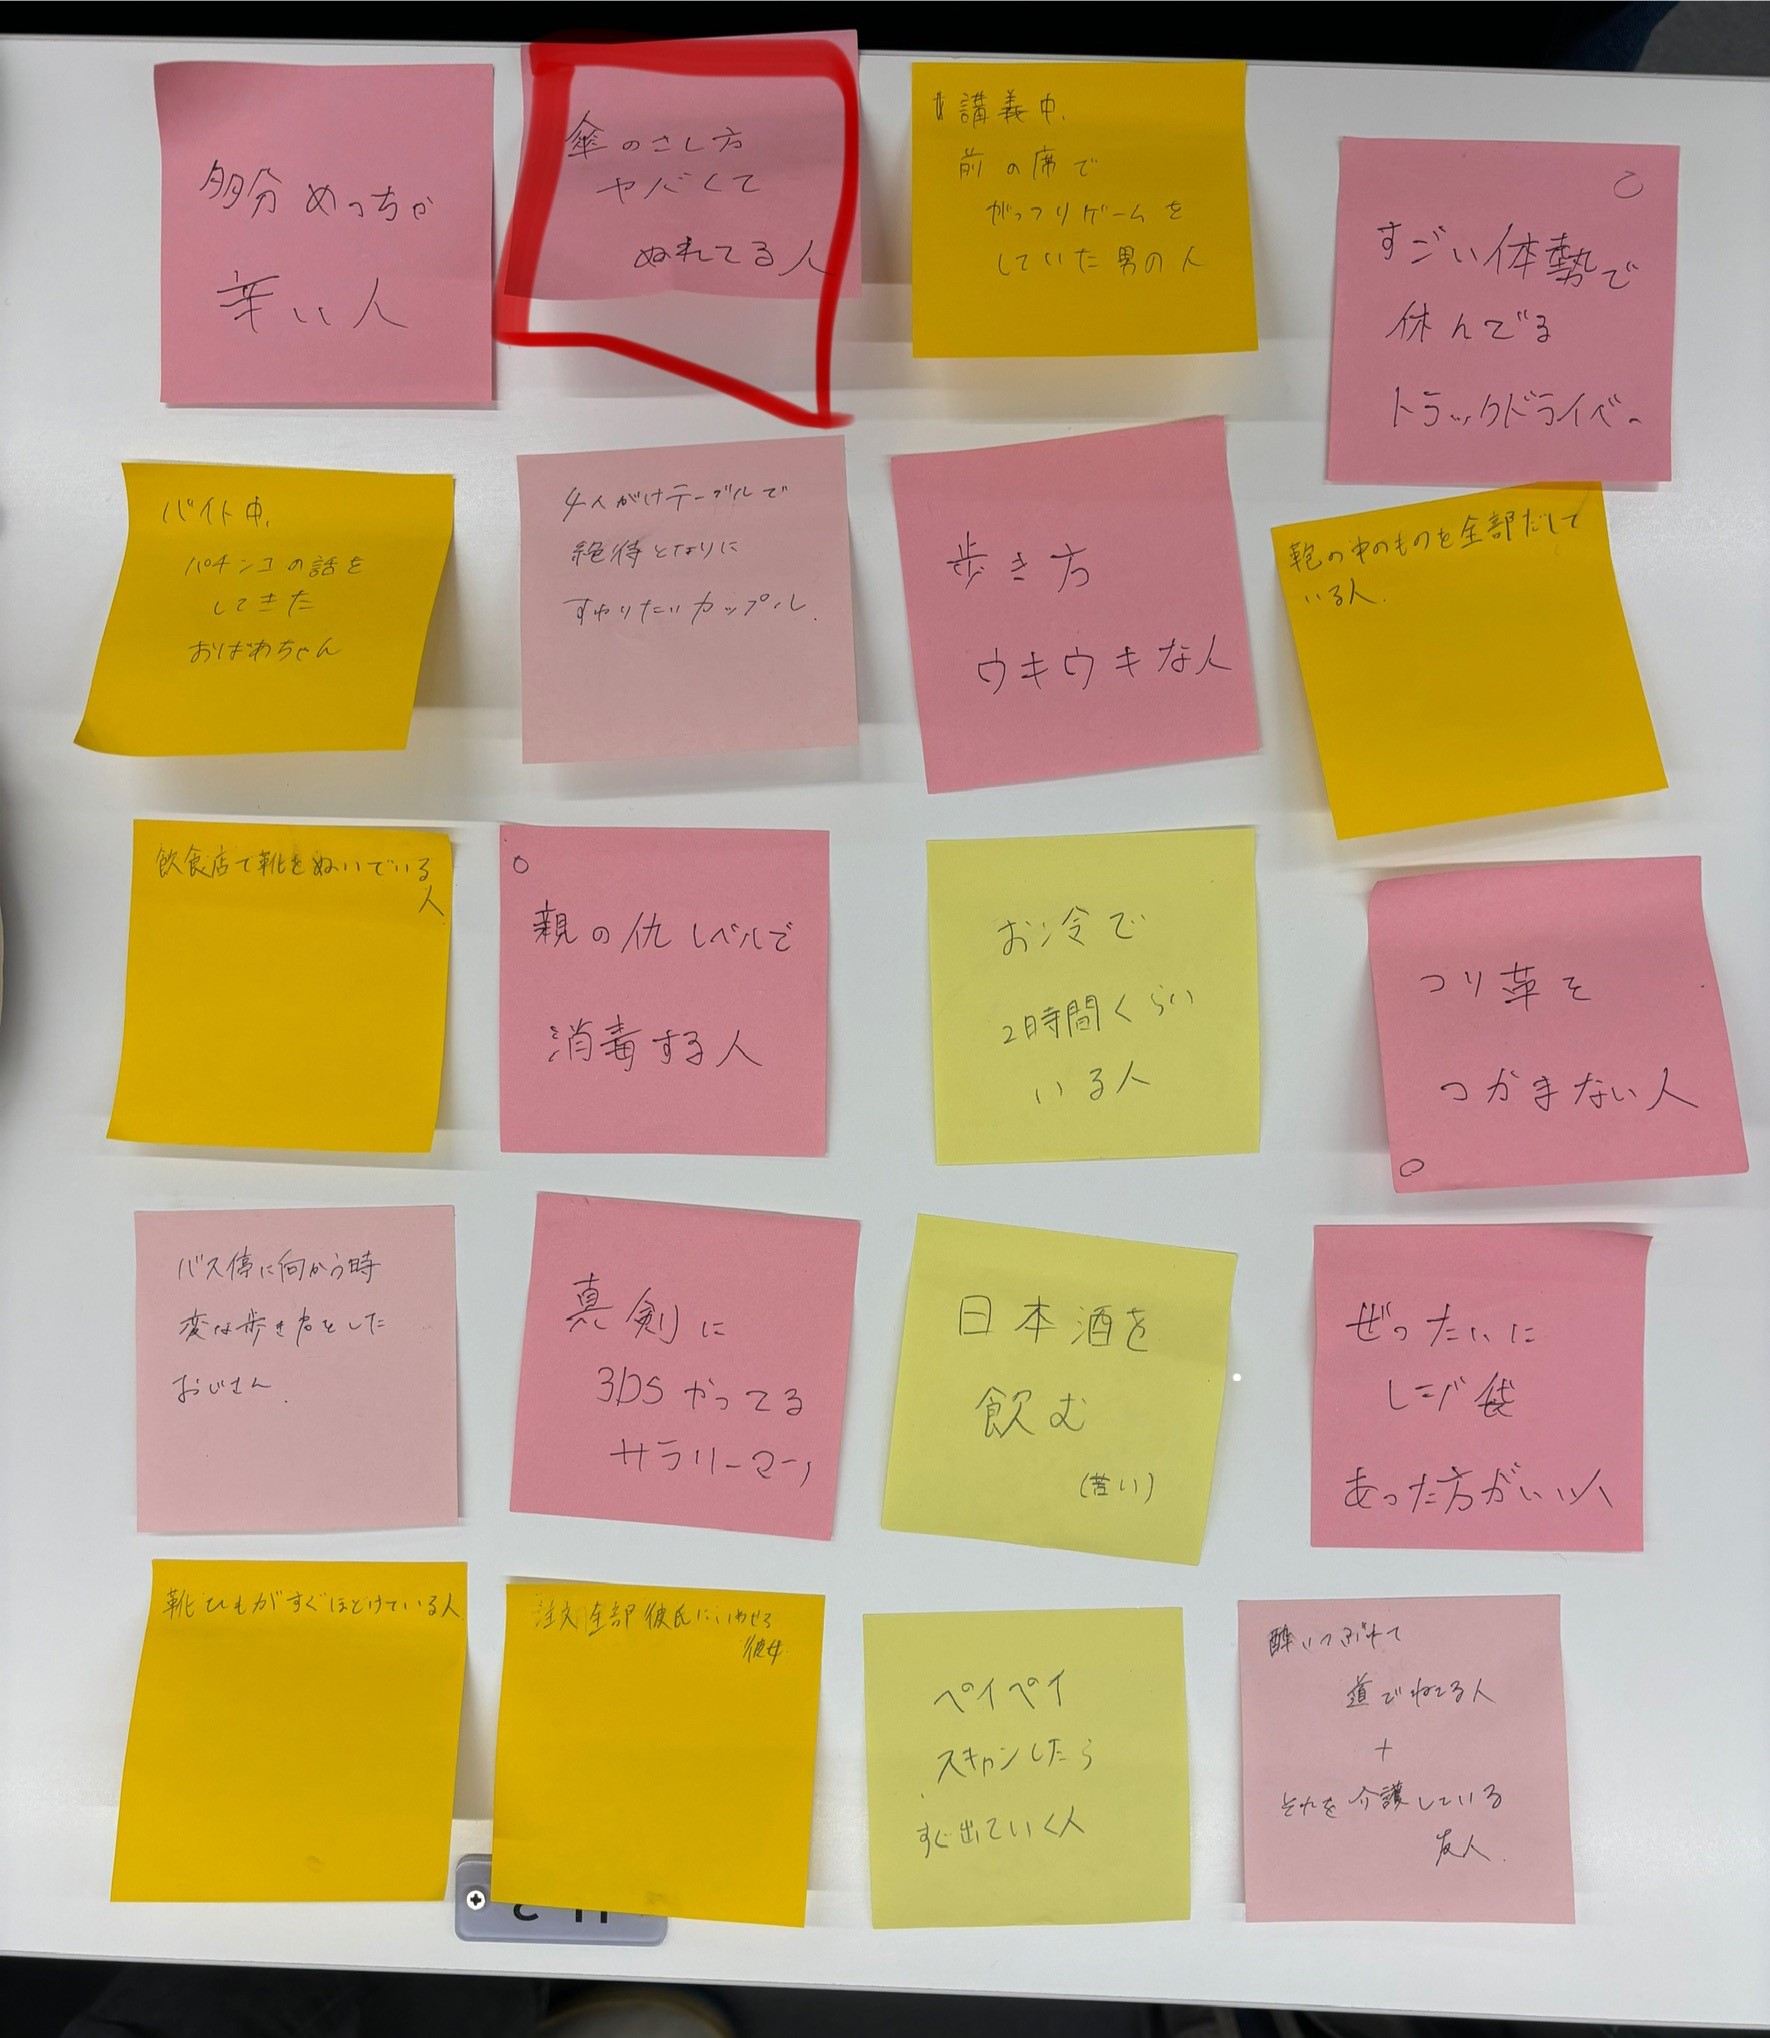 多分めっちゃ
辛い人
傘のさし方
ヤバくて
ぬれてる人
講義中、
前の席で
がっつりゲームを
していた男の人
すごい体勢で
休んでる
トラックドライバー
バイト中、
パチンコの話を
してきた
おばあちゃん
4人がけテーブルで
絶待となりに
すわりたいカップル.
歩き方
ウキウキな人
鞄の中のものを全部だして
いる人.
飲食店で靴をぬいでいる
人
親の仇レベルで
消毒する人
お冷で
2時間くらい
いる人
つり革を
つかまない人
バス停に向かう時
変な歩き方をした
おじさん.
真剣に
3DSやってる
サラリーマン
日本酒を
飲む
(苦い)
ぜったいに
レジ袋
あった方がいい人
靴ひもがすぐほどけている人
注文全部彼氏にいわせる
彼女
ペイペイ
スキャンしたら
すぐ出ていく人
酔いつぶれて
道でねてる人
+
それを介護している
友人.